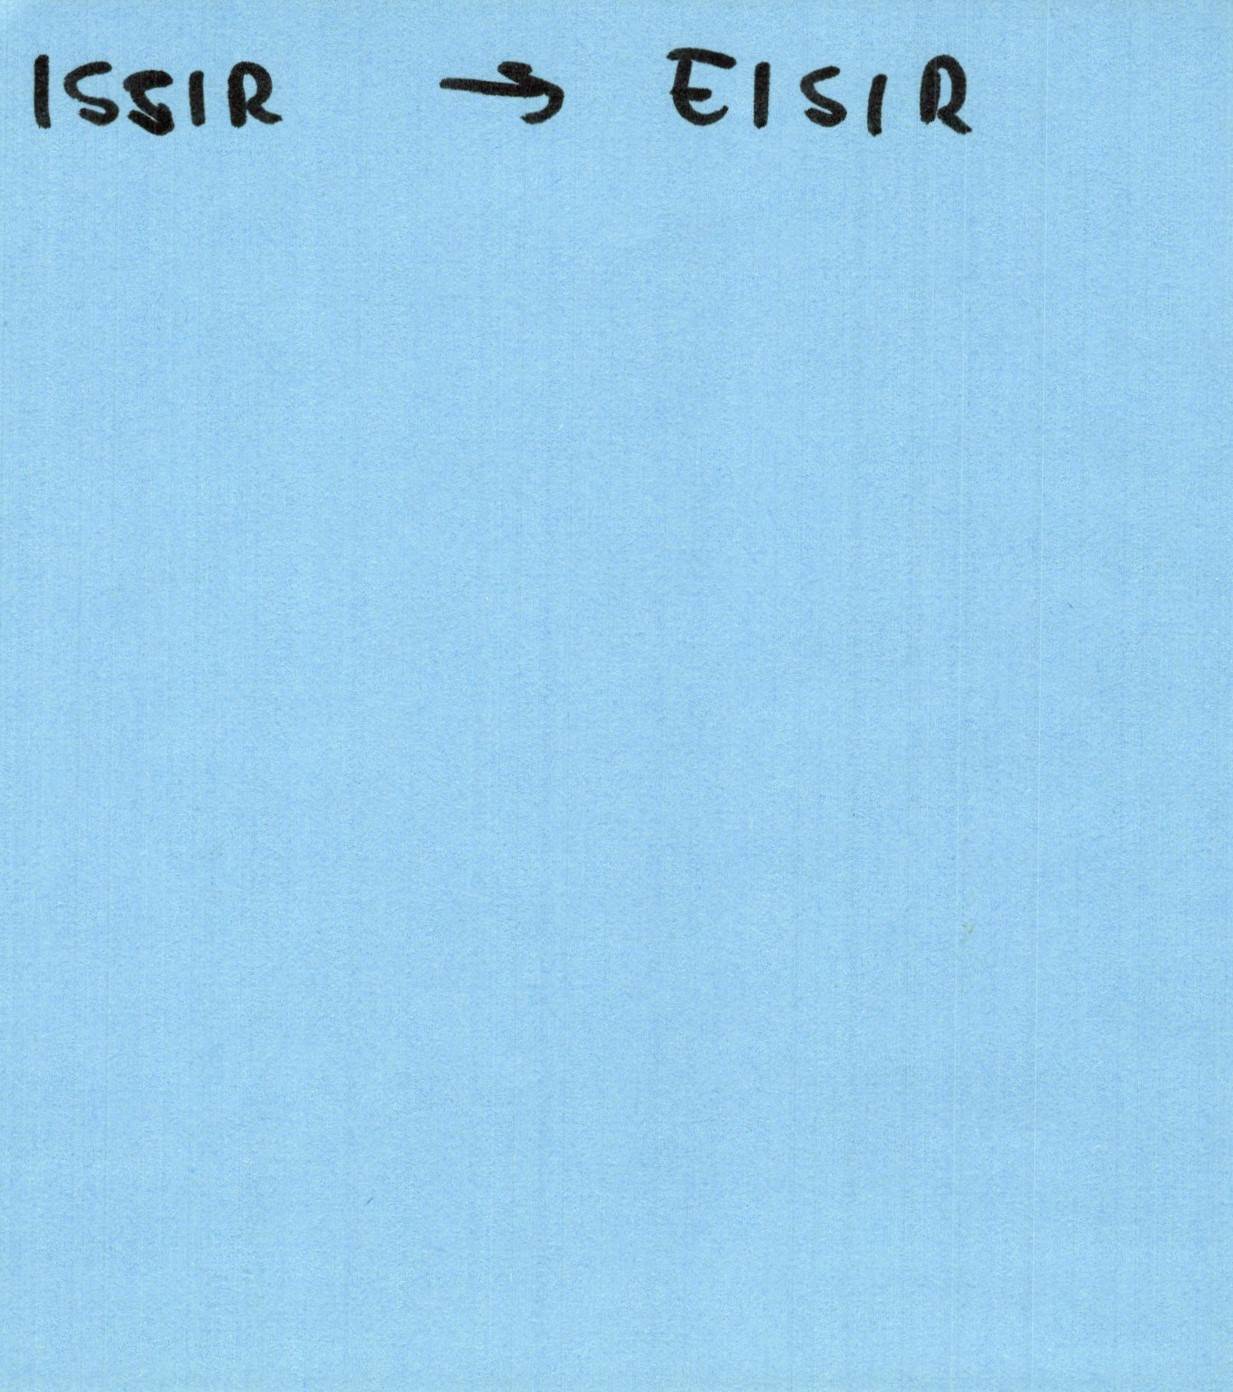 ISSIR → EISIR